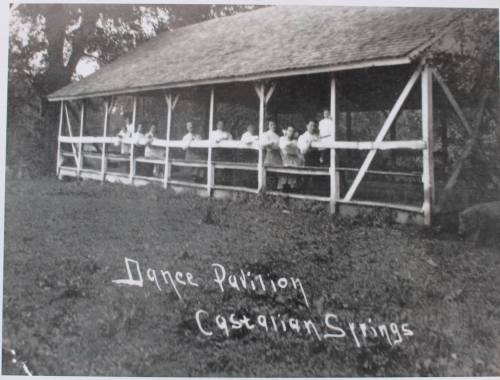 Dance Pavilion
Castalian Springs